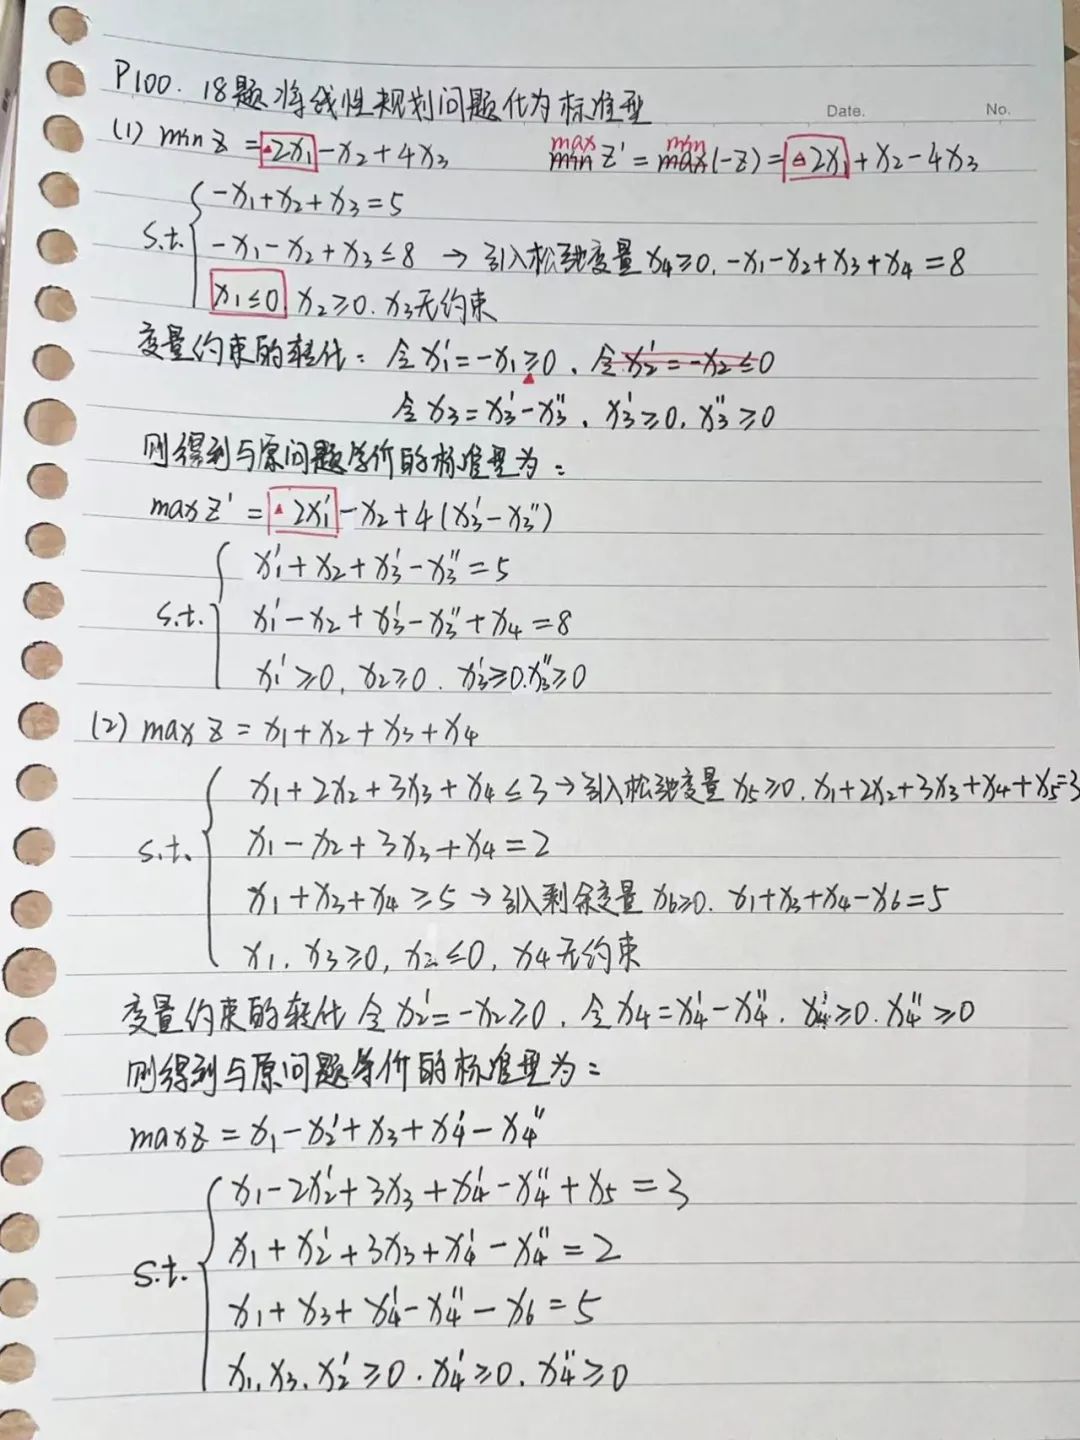 Date. No.
P100. 18题 将线性规划问题化为标准型
(1) min z = 2x₁ - x₂ + 4x₃ max min z' = min max (-z) = 2x₁ + x₂ - 4x₃
s.t. { -x₁ + x₂ + x₃ = 5
-x₁ - x₂ + x₃ ≤ 8 → 引入松弛变量 x₄ ≥ 0. -x₁ - x₂ + x₃ + x₄ = 8
x₁ ≤ 0, x₂ ≥ 0. x₃无约束
变量约束的转化: 令 x₁' = -x₁ ≥ 0、令 x₂' = -x₂ ≤ 0
令 x₃ = x₃' - x₃''、x₃' ≥ 0, x₃'' ≥ 0
则得到与原问题等价的标准型为:
max z' = 2x₁' - x₂ + 4(x₃' - x₃'')
s.t. { x₁' + x₂ + x₃' - x₃'' = 5
x₁' - x₂ + x₃' - x₃'' + x₄ = 8
x₁' ≥ 0, x₂ ≥ 0. x₃' ≥ 0. x₃'' ≥ 0
(2) max z = x₁ + x₂ + x₃ + x₄
s.t. { x₁ + 2x₂ + 3x₃ + x₄ ≤ 3 → 引入松弛变量 x₅ ≥ 0. x₁ + 2x₂ + 3x₃ + x₄ + x₅ = 3
x₁ - x₂ + 3x₃ + x₄ = 2
x₁ + x₃ + x₄ ≥ 5 → 引入剩余变量 x₆ ≥ 0. x₁ + x₃ + x₄ - x₆ = 5
x₁, x₃ ≥ 0, x₂ ≤ 0, x₄无约束
变量约束的转化 令 x₂' = -x₂ ≥ 0、令 x₄ = x₄' - x₄''. x₄' ≥ 0. x₄'' ≥ 0
则得到与原问题等价的标准型为:
max z = x₁ - x₂' + x₃ + x₄' - x₄''
s.t. { x₁ - 2x₂' + 3x₃ + x₄' - x₄'' + x₅ = 3
x₁ + x₂' + 3x₃ + x₄' - x₄'' = 2
x₁ + x₃ + x₄' - x₄'' - x₆ = 5
x₁, x₃, x₂' ≥ 0. x₄' ≥ 0. x₄'' ≥ 0